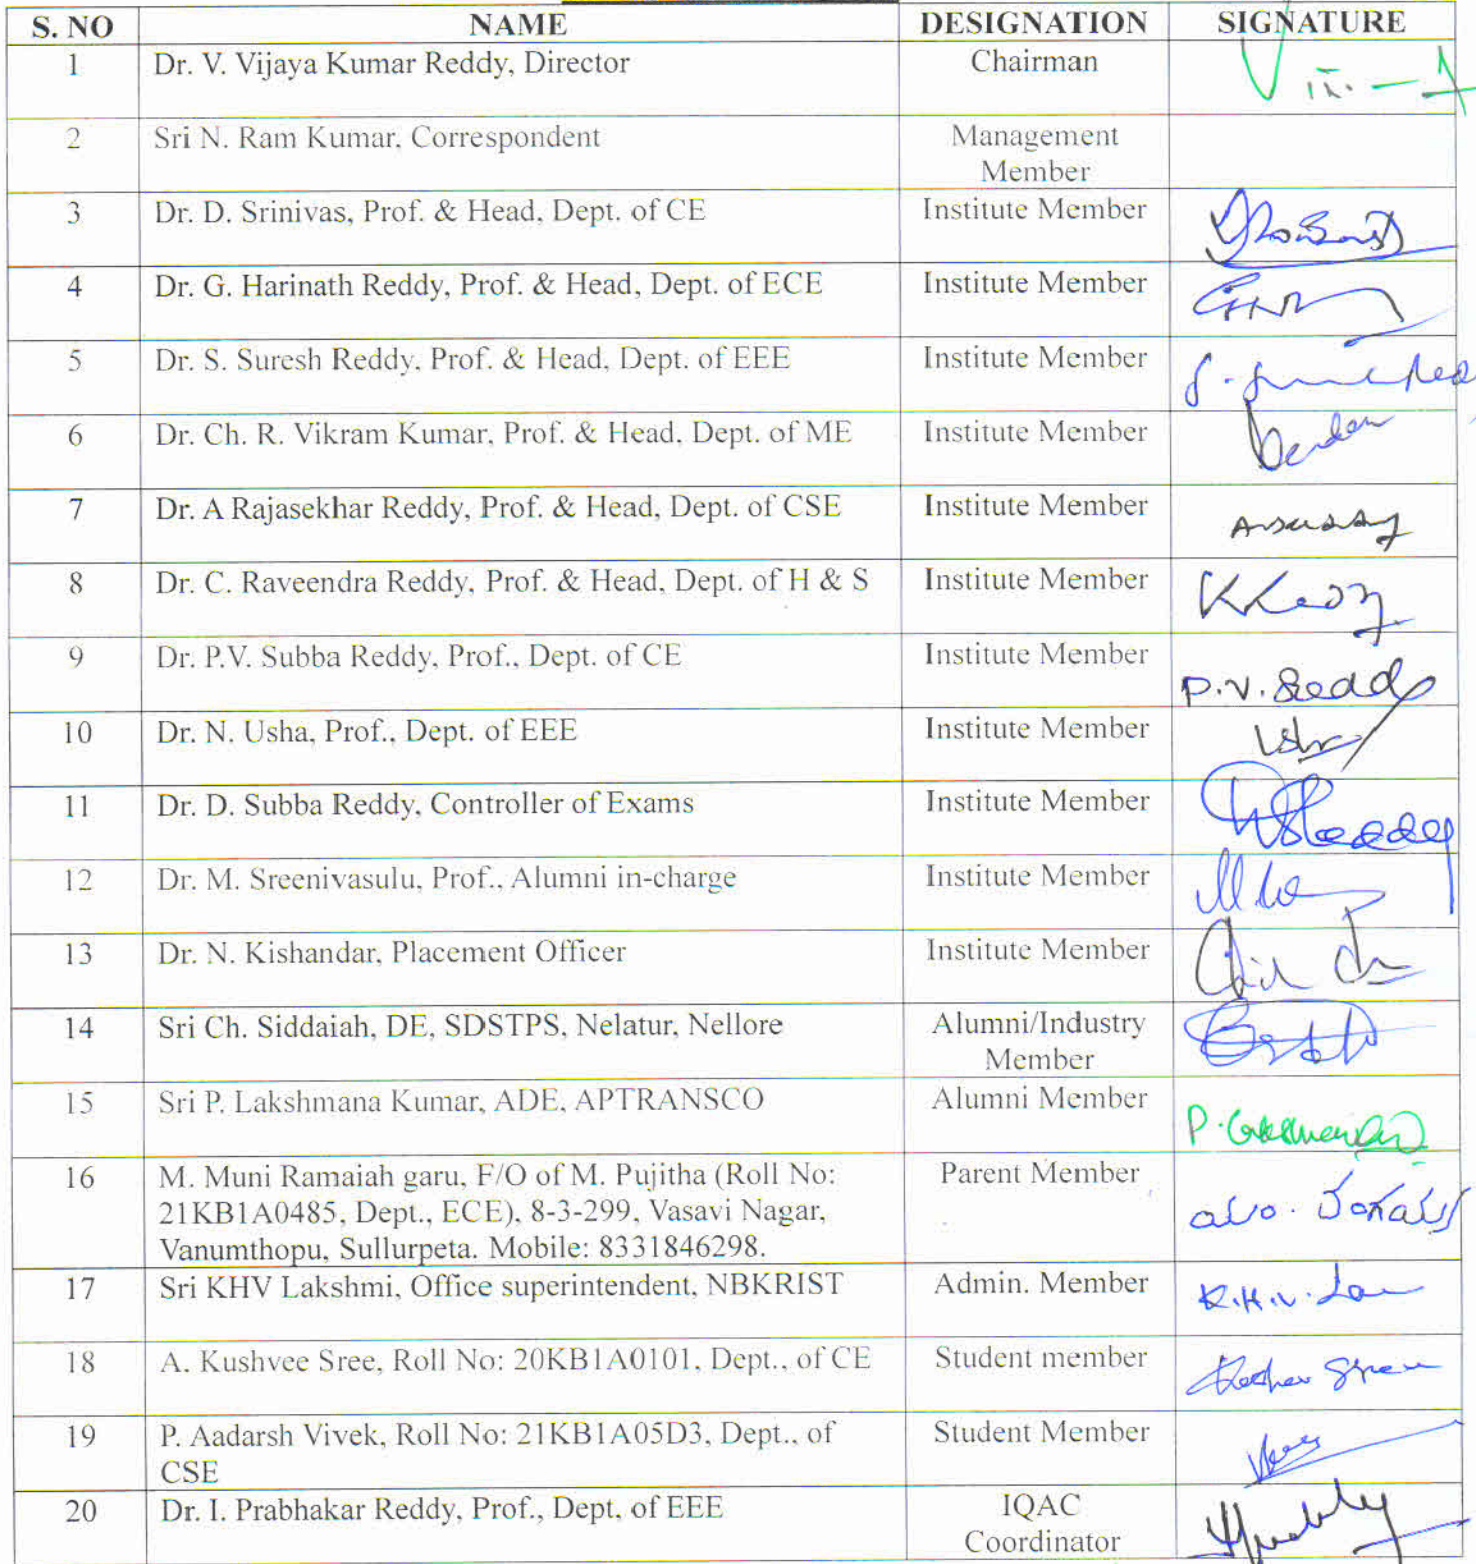 S. NO NAME DESIGNATION SIGNATURE
1 Dr. V. Vijaya Kumar Reddy, Director Chairman
2 Sri N. Ram Kumar, Correspondent Management
Member
3 Dr. D. Srinivas, Prof. & Head, Dept. of CE Institute Member
4 Dr. G. Harinath Reddy, Prof. & Head, Dept. of ECE Institute Member
5 Dr. S. Suresh Reddy, Prof. & Head, Dept. of EEE Institute Member
6 Dr. Ch. R. Vikram Kumar, Prof. & Head, Dept. of ME Institute Member
7 Dr. A Rajasekhar Reddy, Prof. & Head, Dept. of CSE Institute Member
8 Dr. C. Raveendra Reddy, Prof. & Head, Dept. of H & S Institute Member
9 Dr. P.V. Subba Reddy, Prof., Dept. of CE Institute Member
P.V.
10 Dr. N. Usha, Prof., Dept. of EEE Institute Member
11 Dr. D. Subba Reddy, Controller of Exams Institute Member
12 Dr. M. Sreenivasulu, Prof., Alumni in-charge Institute Member
13 Dr. N. Kishandar, Placement Officer Institute Member
14 Sri Ch. Siddaiah, DE, SDSTPS, Nelatur, Nellore Alumni/Industry
Member
15 Sri P. Lakshmana Kumar, ADE, APTRANSCO Alumni Member
16 M. Muni Ramaiah garu, F/O of M. Pujitha (Roll No: Parent Member
21KB1A0485, Dept., ECE), 8-3-299, Vasavi Nagar,
Vanumthopu, Sullurpeta. Mobile: 8331846298.
17 Sri KHV Lakshmi, Office superintendent, NBKRIST Admin. Member
K.H.V.
18 A. Kushvee Sree, Roll No: 20KB1A0101, Dept., of CE Student member
19 P. Aadarsh Vivek, Roll No: 21KB1A05D3, Dept., of Student Member
CSE
20 Dr. I. Prabhakar Reddy, Prof., Dept, of EEE IQAC
Coordinator